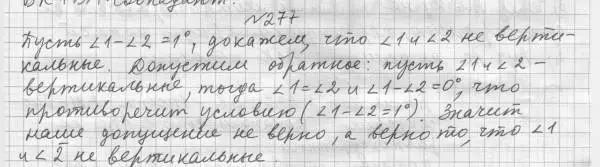 ВК и ВМ совпадают.
№277
Пусть ∠1-∠2=1°, докажем, что ∠1 и ∠2 не верти-
кальные. Допустим обратное: пусть ∠1 и ∠2 -
вертикальные, тогда ∠1=∠2 и ∠1-∠2=0°, что
противоречит условию (∠1-∠2=1°). Значит
наше допущение не верно, а верно то, что ∠1
и ∠2 не вертикальные.